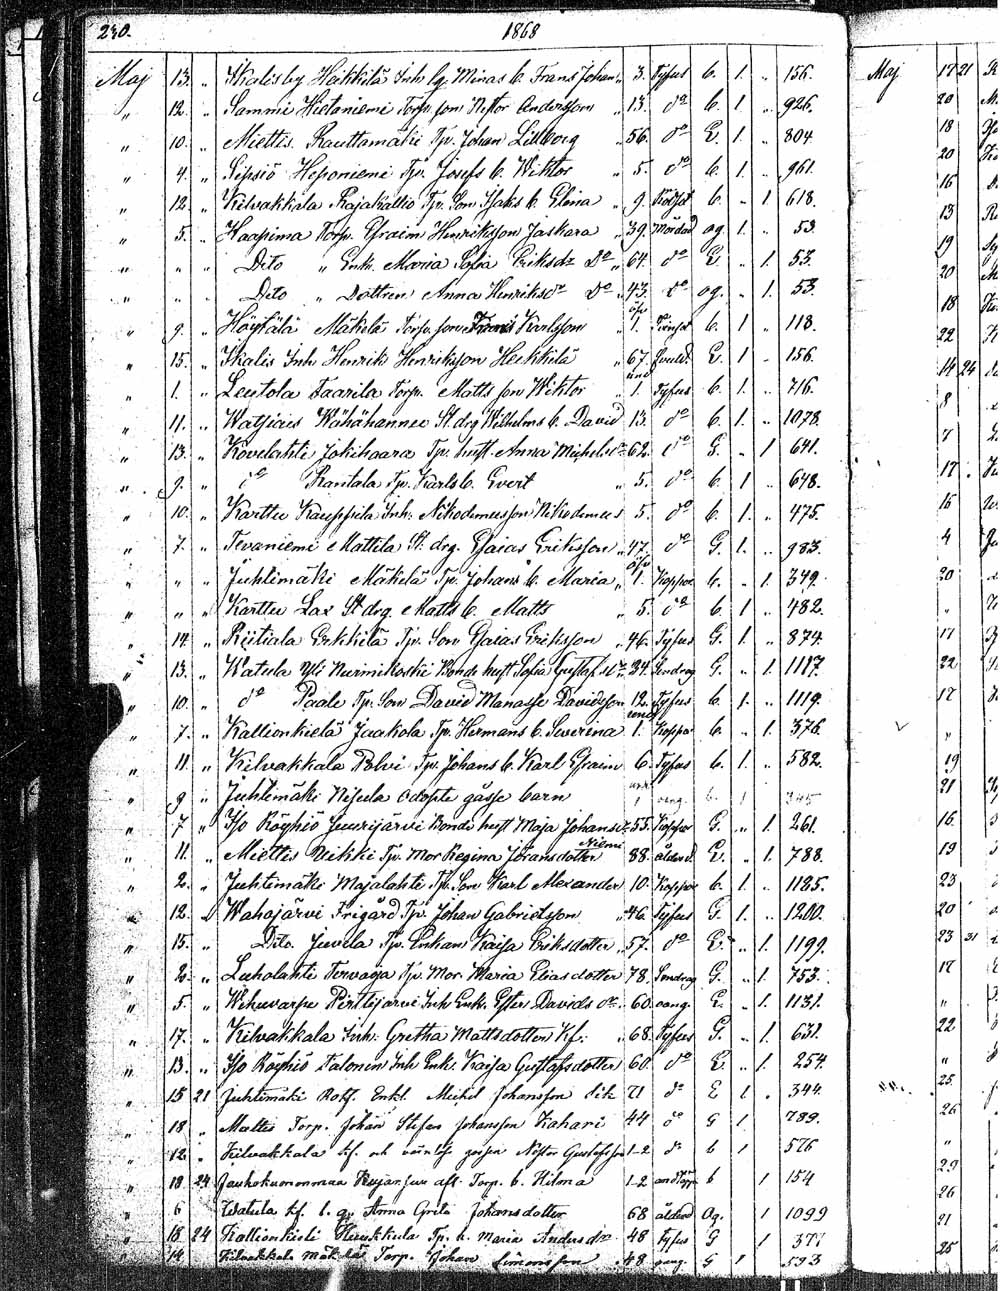 230. 1868
Maj 13. „ Ikalisby Heikkilä Inh. lg. Minas b. Frans Johan „ 3. Tyfus b. 1. „ 156.
„ 12. „ Sammi Hietaniemi Torp. son Nestor Andersson „ 13. do b. 1 „ 926.
„ 10. „ Miettis Rauttamäki Tp. Johan Lillborg „ 56. do E. 1. „ 804.
„ 4. „ Sipsiö Heponiemi Tp. Josefs b. Wiktor „ 5. do b. 1. „ 961.
„ 12. „ Kilvakkala Rajakallio Tp. Son Isaks b. Elina „ 9. b. „ 1 618.
„ 5. „ Haapima Torp. Efraim Henriksson Jaskara „ 39. Mördad og. 1. „ 53.
„ „ „ Dito „ Enk. Maria Sofia Eriksdr Do „ 64. do E. „ 1. 53.
„ „ „ Dito „ Dottren Anna Henriksdr Do „ 43. do og. „ 1. 53.
„ 9. „ Höytälä Mäkelä Torp. son Frans Karlsson öfv 1. b. 1 „ 118.
„ 15. „ Ikalis Inh. Henrik Henriksson Heikkilä „ 67. E. 1 „ 156.
„ 1. „ Leutola Taarila Torp. Matts son Wiktor und 1. Tyfus b. 1. „ 716.
„ 11. „ Watjiais Wähähannu St. drg Wilhelms b. David 13. do b. 1. „ 1078.
„ 13. „ Kovelahti Jokihaara Tp. hust. Anna Michelsdr 62. do G. „ 1 641.
„ 9. „ do Rantala Tp. Karls b. Evert „ 5. do b. 1 „ 648.
„ 10. „ Karttu Kauppila Inh. Nikodemusson Nikodemus 5. do b. 1. „ 475.
„ 7. „ Tevaniemi Mattila St. drg. Esaias Eriksson „ 47. do G. 1. „ 983.
„ „ „ Juhtimäki Mäkelä Tp. Johans b. Maria öfv 1. Koppor b. „ 1. 349.
„ „ „ Karttu Lax St drg Matts b. Matts „ 5. do b. 1 „ 482.
„ 14. „ Riitiala Erkkilä Tp. Son Esaias Eriksson „ 46. Tyfus G. 1. „ 874.
„ 13. „ Watula Yli Nurmikoski Bonde hust Sofia Gustafsdr 34. Lendrag G. „ 1. 1117.
„ 10. „ do Paale Tp. Son David Manasse Davidsson 12. Tyfus b. 1. „ 1119.
„ 7. „ Kallionkielä Jaakola Tp. Hermans b. Severina und 1. Koppor b. „ 1. 376.
„ 11 „ Kilvakkala Polvi Tp. Johans b. Karl Efraim 6. Tyfus b. 1. „ 582.
„ 9 „ Juhtimäki Nisula odöpte gosse barn und 1 oang. b. 1 345
„ 7 „ Iso Röyhiö Juurijärvi Bonde hust Maja Johansdr 55. Koppor G. „ 1. 261.
„ 11. „ Miettis Nikki Tp. Mor Regina Jöransdotter Niemi 88. ålderd. E. „ 1. 788.
„ 2. „ Juhtimäki Majalahti Tp. Son Karl Alexander 10. Koppor b. 1. „ 1125.
„ 12. „ Wahojärvi Frigård Tp. Johan Gabrielsson „ 46. Tyfus G. 1. „ 1200.
„ 15. „ Dito. Juvela Tp. Enkan Kaisa Eriksdotter „ 57. do E. „ 1. 1199.
„ 2. „ Luhalahti Tervaoja Tp. Mor Maria Eliasdotter 78. Lendrag G. „ 1. 753.
„ 5. „ Wehuvarpe Pirttijärvi Inh Enk. Ester Davids dr. 60. oang. E. „ 1. 1131.
„ 17. „ Kilvakkala Inh. Gretha Mattsdotter Kf. „ 68. Tyfus G. „ 1. 631.
„ 13. „ Iso Röyhiö Talonen Inh Enk. Kaisa Gustafsdotter 60. do E. „ 1. 254.
„ 15 21 Juhtimäki Rotf. Enkl. Mickel Johansson Sik 71 do E 1 . 344.
„ 18 „ Mattis Torp. Johan Stefan Johansson Kahari 44 do G 1 789.
„ 12. „ Kilvakkala kf. och gossen Nestor Gustafsson 1-2 do b 1 576
„ 18 24 Jauhokuononmaa aft. Torp. b. Hilma 1-2 b 1 154
„ 6 Watula kf. l. q. Anna Greta Johansdotter 68 ålderd Og. 1 1099
„ 18 24 Kallionkieli Heinkkula Tp. h. Maria Andersdr 48 tyfus G 1 377
„ 14 Kilvakkala Mäkilä Torp. Johan Simonsson 48 oang. G 1 593
Maj 17 21
20
18
20
16
13
19
20
18
22
14 24
8
7
17
16
4
20
„
17
22
17
„
19
21
16
19
23
20
23 31
17
„
22
„
25
26
„
29
26
21
25